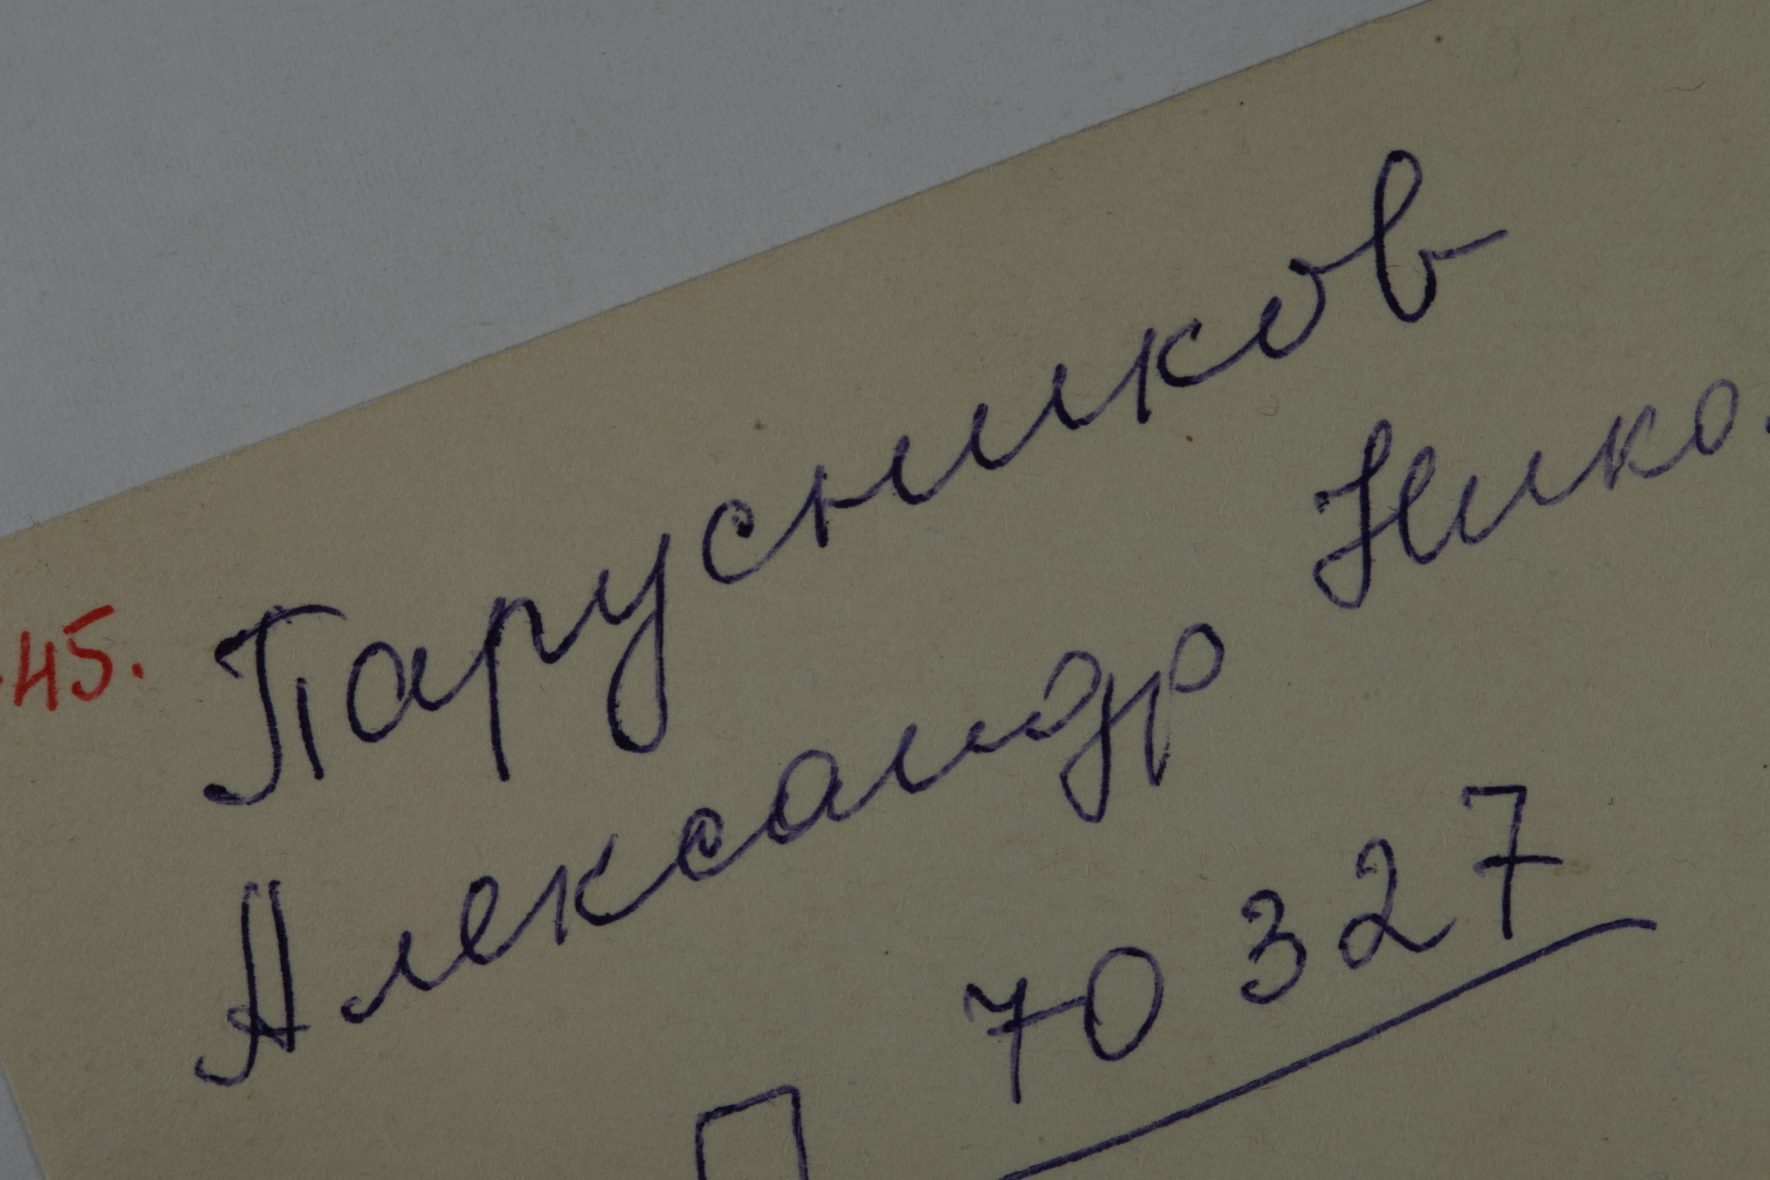 45. Парусников
Александр Нико
70327
П